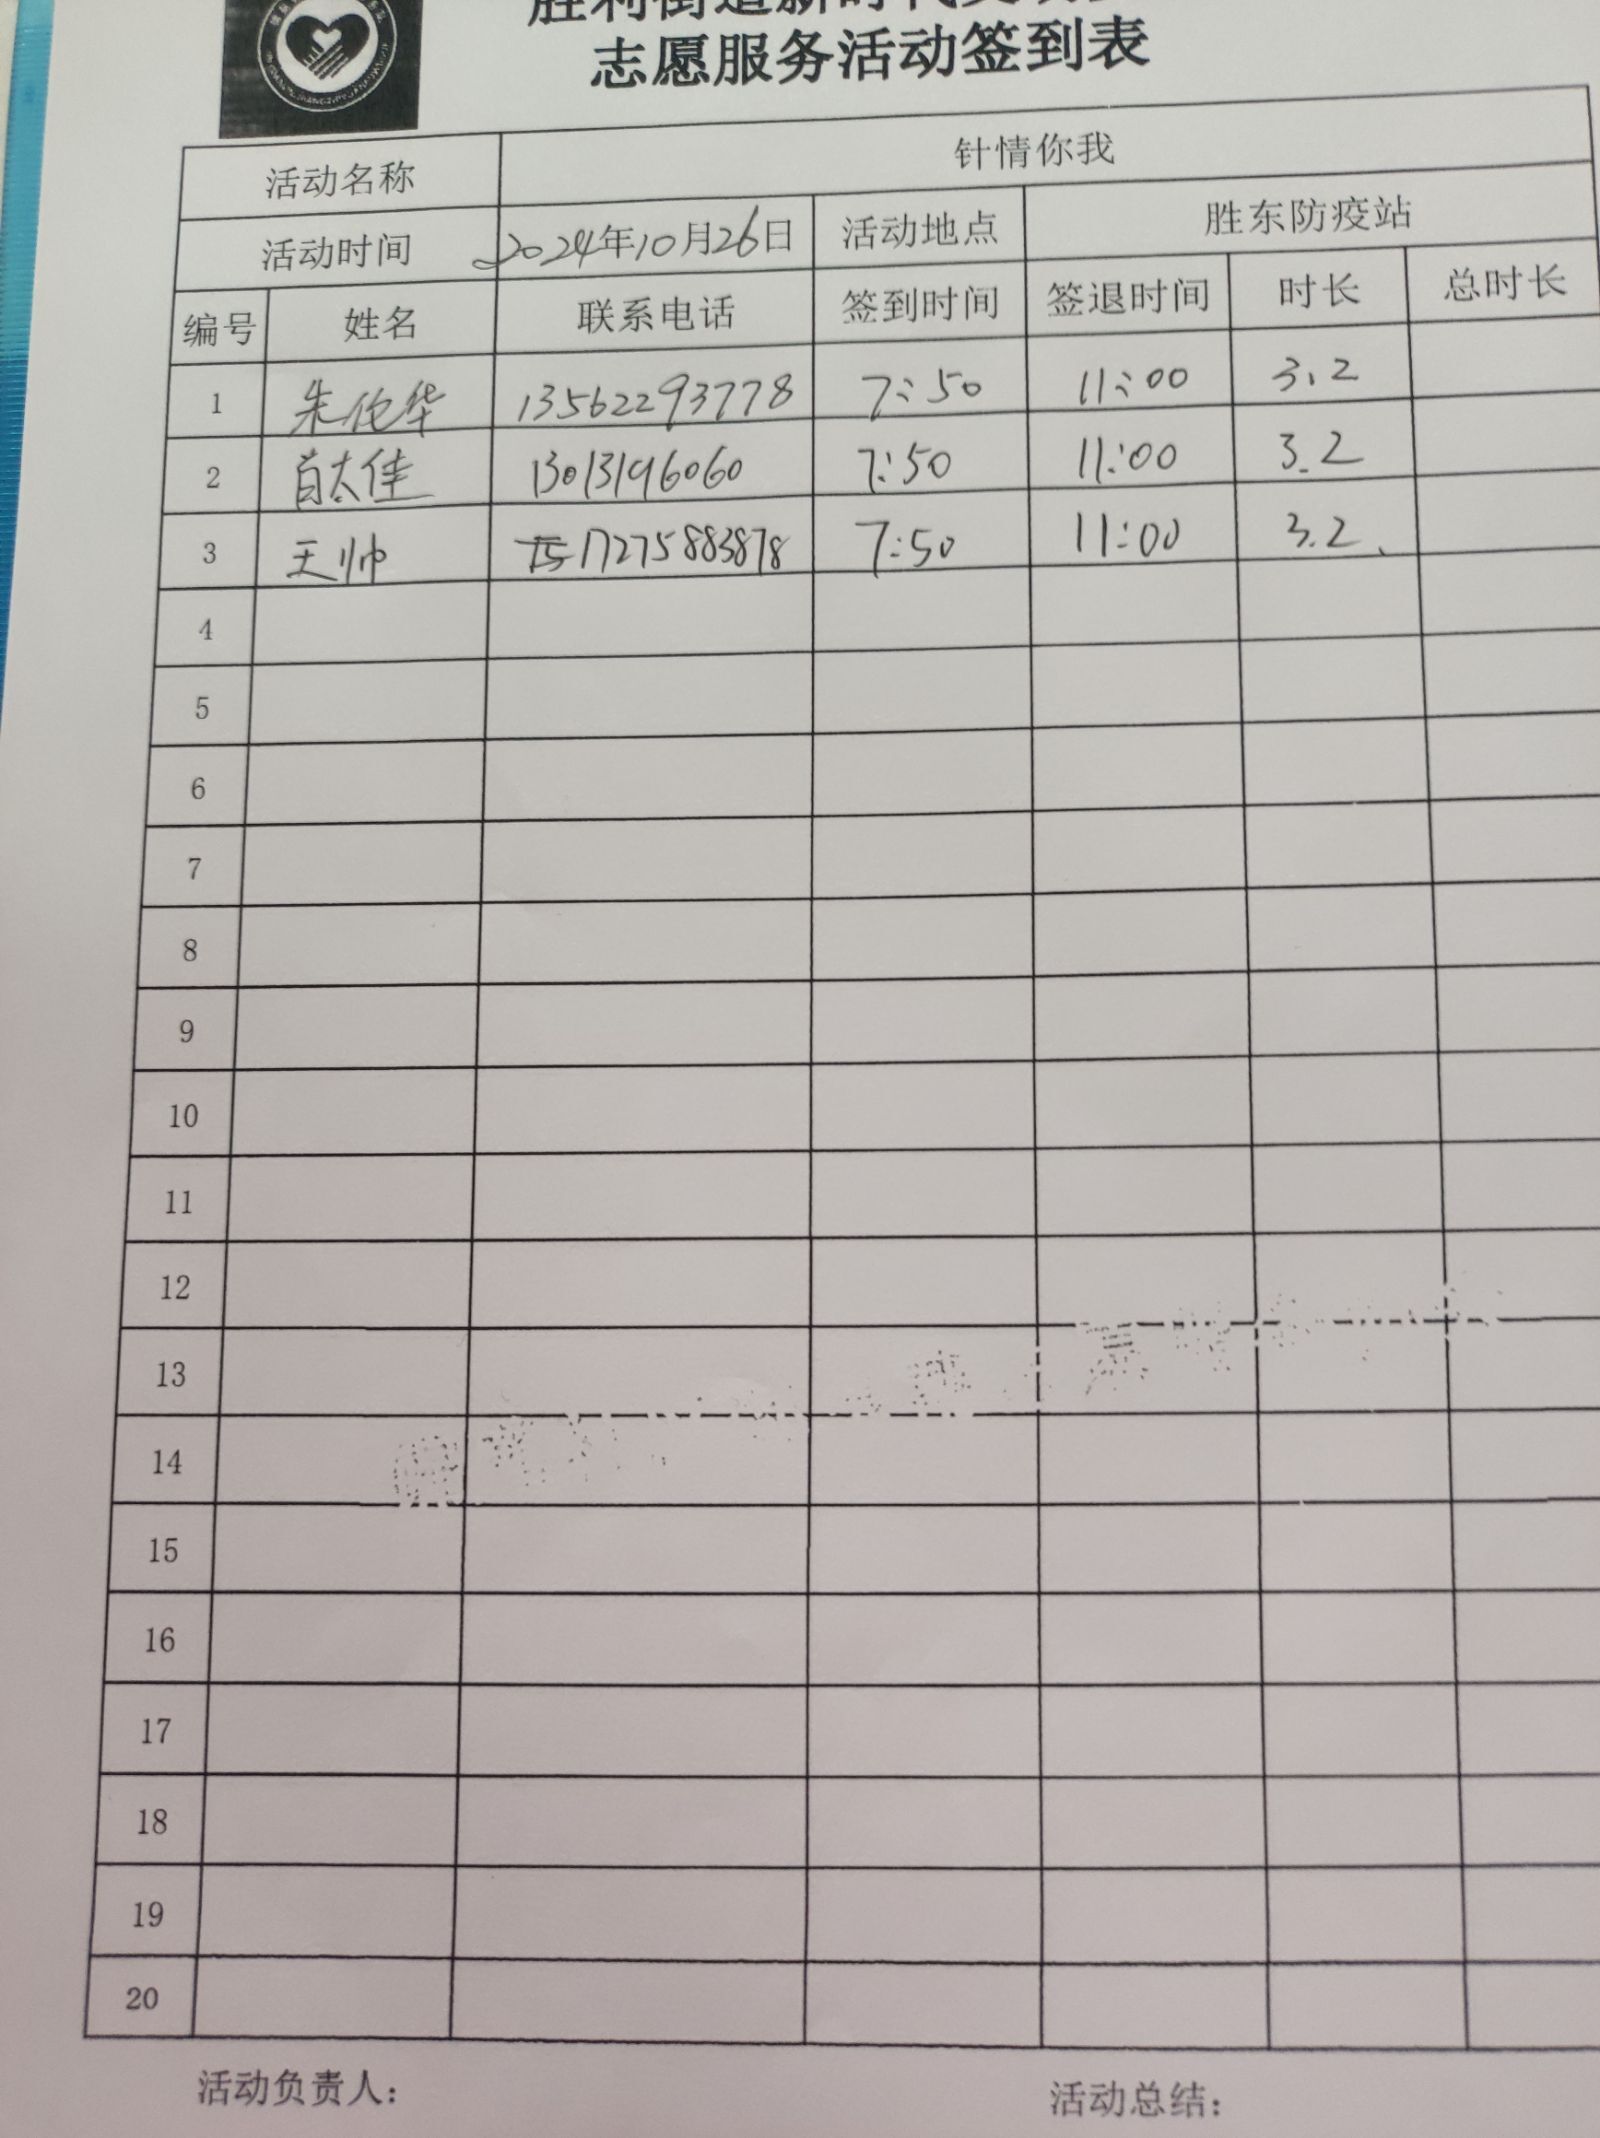 胜利街道新时代文明
志愿服务活动签到表
活动名称 针情你我
活动时间 2024年10月26日 活动地点 胜东防疫站
编号 姓名 联系电话 签到时间 签退时间 时长 总时长
1 朱伦华 13562293778 7:50 11:00 3.2
2 肖太佳 13013196060 7:50 11:00 3.2
3 王帅 17275883878 7:50 11:00 3.2
4
5
6
7
8
9
10
11
12
13
14
15
16
17
18
19
20
活动负责人： 活动总结：